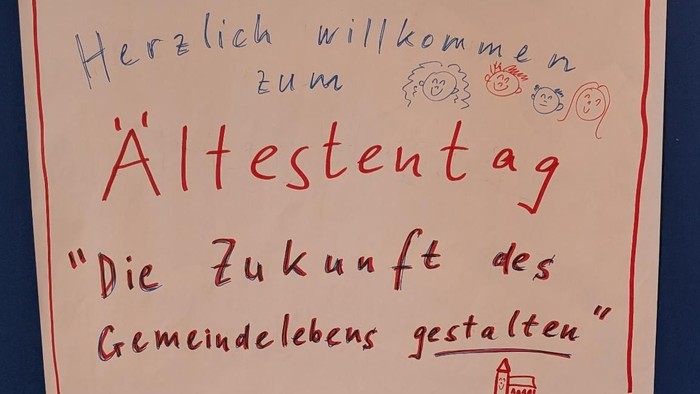 Herzlich willkommen
zum
Ältestentag
"Die Zukunft des
Gemeindelebens gestalten"